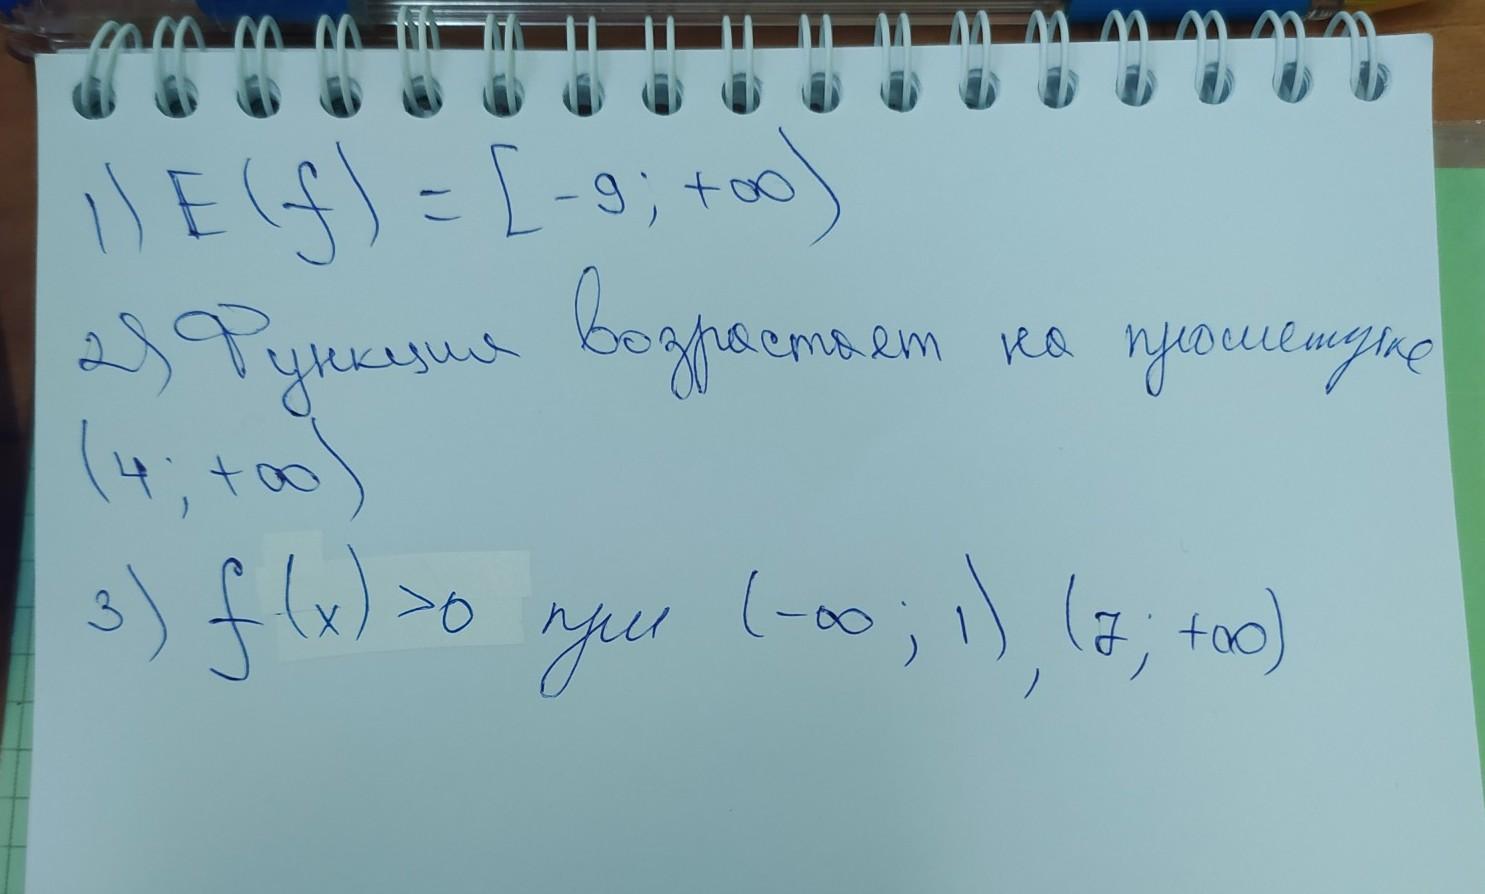 1) E(f) = [-9; +∞)
2) Функция возрастает на промежутке
(4; +∞)
3) f(x) >0 при (-∞; 1), (7; +∞)